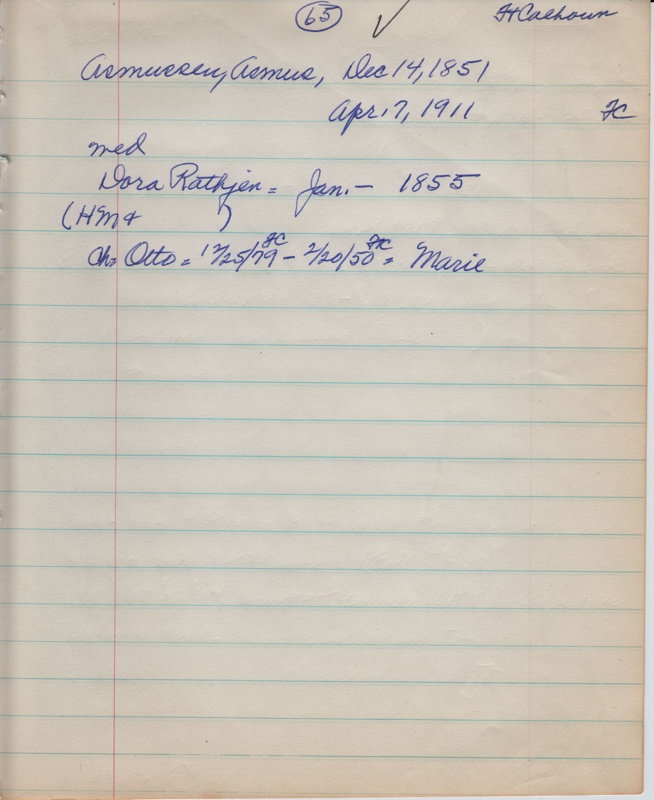 65 ✓ Ft Calhoun
Asmussen, Asmus, Dec 14, 1851
Apr. 7, 1911 FC
med
Dora Rathjen = Jan. - 1855
(HM & )
ch = Otto = 12/25/79 FC - 2/20/50 FC = Marie